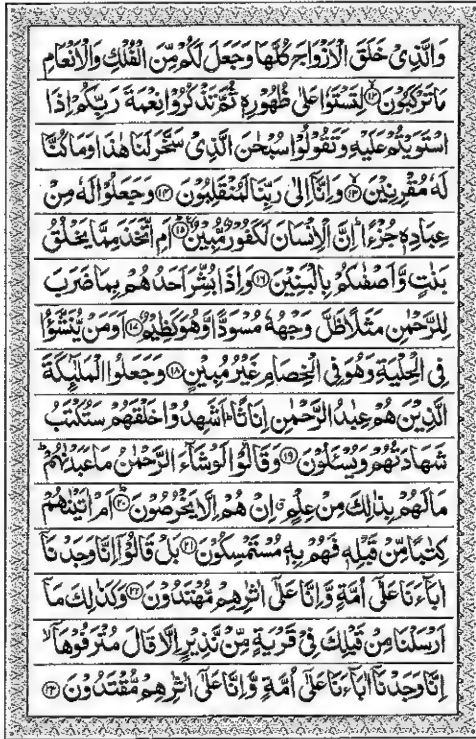 وَالَّذِىْ خَلَقَ الْاَزْوَاجَ كُلَّهَا وَجَعَلَ لَكُمْ مِّنَ الْفُلْكِ وَالْاَنْعَامِ
مَا تَرْكَبُوْنَ ﴿۱۲﴾ لِتَسْتَوٗا عَلٰى ظُهُوْرِهٖ ثُمَّ تَذْكُرُوْا نِعْمَةَ رَبِّكُمْ اِذَا
اسْتَوَيْتُمْ عَلَيْهِ وَتَقُوْلُوْا سُبْحٰنَ الَّذِىْ سَخَّرَ لَنَا هٰذَا وَمَا كُنَّا
لَهٗ مُقْرِنِيْنَ ﴿۱۳﴾ وَاِنَّآ اِلٰى رَبِّنَا لَمُنْقَلِبُوْنَ ﴿۱۴﴾ وَجَعَلُوْا لَهٗ مِنْ
عِبَادِهٖ جُزْءًا ؕ اِنَّ الْاِنْسَانَ لَكَفُوْرٌ مُّبِيْنٌ ﴿۱۵﴾ اَمِ اتَّخَذَ مِمَّا يَخْلُقُ
بَنٰتٍ وَّاَصْفٰىكُمْ بِالْبَنِيْنَ ﴿۱۶﴾ وَاِذَا بُشِّرَ اَحَدُهُمْ بِمَا ضَرَبَ
لِلرَّحْمٰنِ مَثَلًا ظَلَّ وَجْهُهٗ مُسْوَدًّا وَّهُوَ كَظِيْمٌ ﴿۱۷﴾ اَوَمَنْ يُّنَشَّؤُا
فِى الْحِلْيَةِ وَهُوَ فِى الْخِصَامِ غَيْرُ مُبِيْنٍ ﴿۱۸﴾ وَجَعَلُوا الْمَلٰٓئِكَةَ
الَّذِيْنَ هُمْ عِبٰدُ الرَّحْمٰنِ اِنَاثًا ؕ اَشَهِدُوْا خَلْقَهُمْ ؕ سَتُكْتَبُ
شَهَادَتُهُمْ وَيُسْئَلُوْنَ ﴿۱۹﴾ وَقَالُوْا لَوْ شَآءَ الرَّحْمٰنُ مَا عَبَدْنٰهُمْ ؕ
مَا لَهُمْ بِذٰلِكَ مِنْ عِلْمٍ ۗ اِنْ هُمْ اِلَّا يَخْرُصُوْنَ ﴿۲۰﴾ اَمْ اٰتَيْنٰهُمْ
كِتٰبًا مِّنْ قَبْلِهٖ فَهُمْ بِهٖ مُسْتَمْسِكُوْنَ ﴿۲۱﴾ بَلْ قَالُوْٓا اِنَّا وَجَدْنَآ
اٰبَآءَنَا عَلٰٓى اُمَّةٍ وَّاِنَّا عَلٰٓى اٰثٰرِهِمْ مُّهْتَدُوْنَ ﴿۲۲﴾ وَكَذٰلِكَ مَآ
اَرْسَلْنَا مِنْ قَبْلِكَ فِىْ قَرْيَةٍ مِّنْ نَّذِيْرٍ اِلَّا قَالَ مُتْرَفُوْهَآ ۙ
اِنَّا وَجَدْنَآ اٰبَآءَنَا عَلٰٓى اُمَّةٍ وَّاِنَّا عَلٰٓى اٰثٰرِهِمْ مُّقْتَدُوْنَ ﴿۲۳﴾